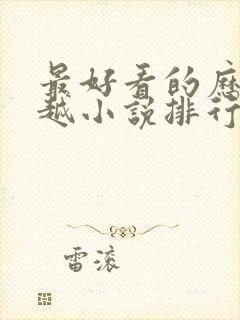 最好看的历
越小说排行
雷滚